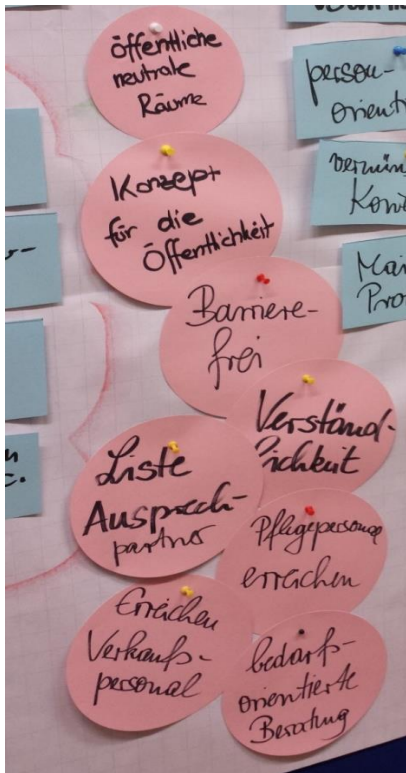 öffentliche
neutrale
Räume
Konzept
für die
Öffentlichkeit
Barriere-
frei
Verständ-
lichkeit
Liste
Ansprech-
partner
Pflegepersonal
erreichen
Erreichen
Verkaufs-
personal
bedarfs-
orientierte
Beratung
person-
orient